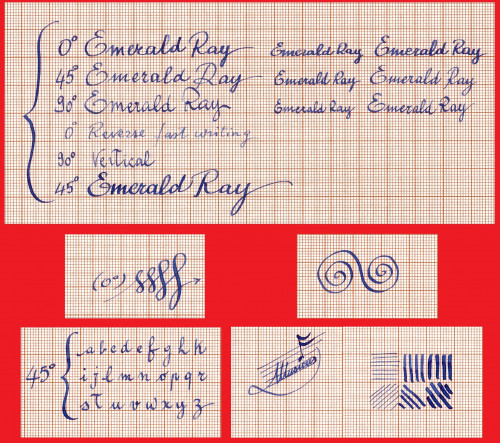 0° Emerald Ray Emerald Ray Emerald Ray
45° Emerald Ray Emerald Ray Emerald Ray
90° Emerald Ray Emerald Ray Emerald Ray
0° Reverse fast writing
90° Vertical
45° Emerald Ray
(0°)
45°
a b c d e f g h k
i j l m n o p q r
s t u v w x y z